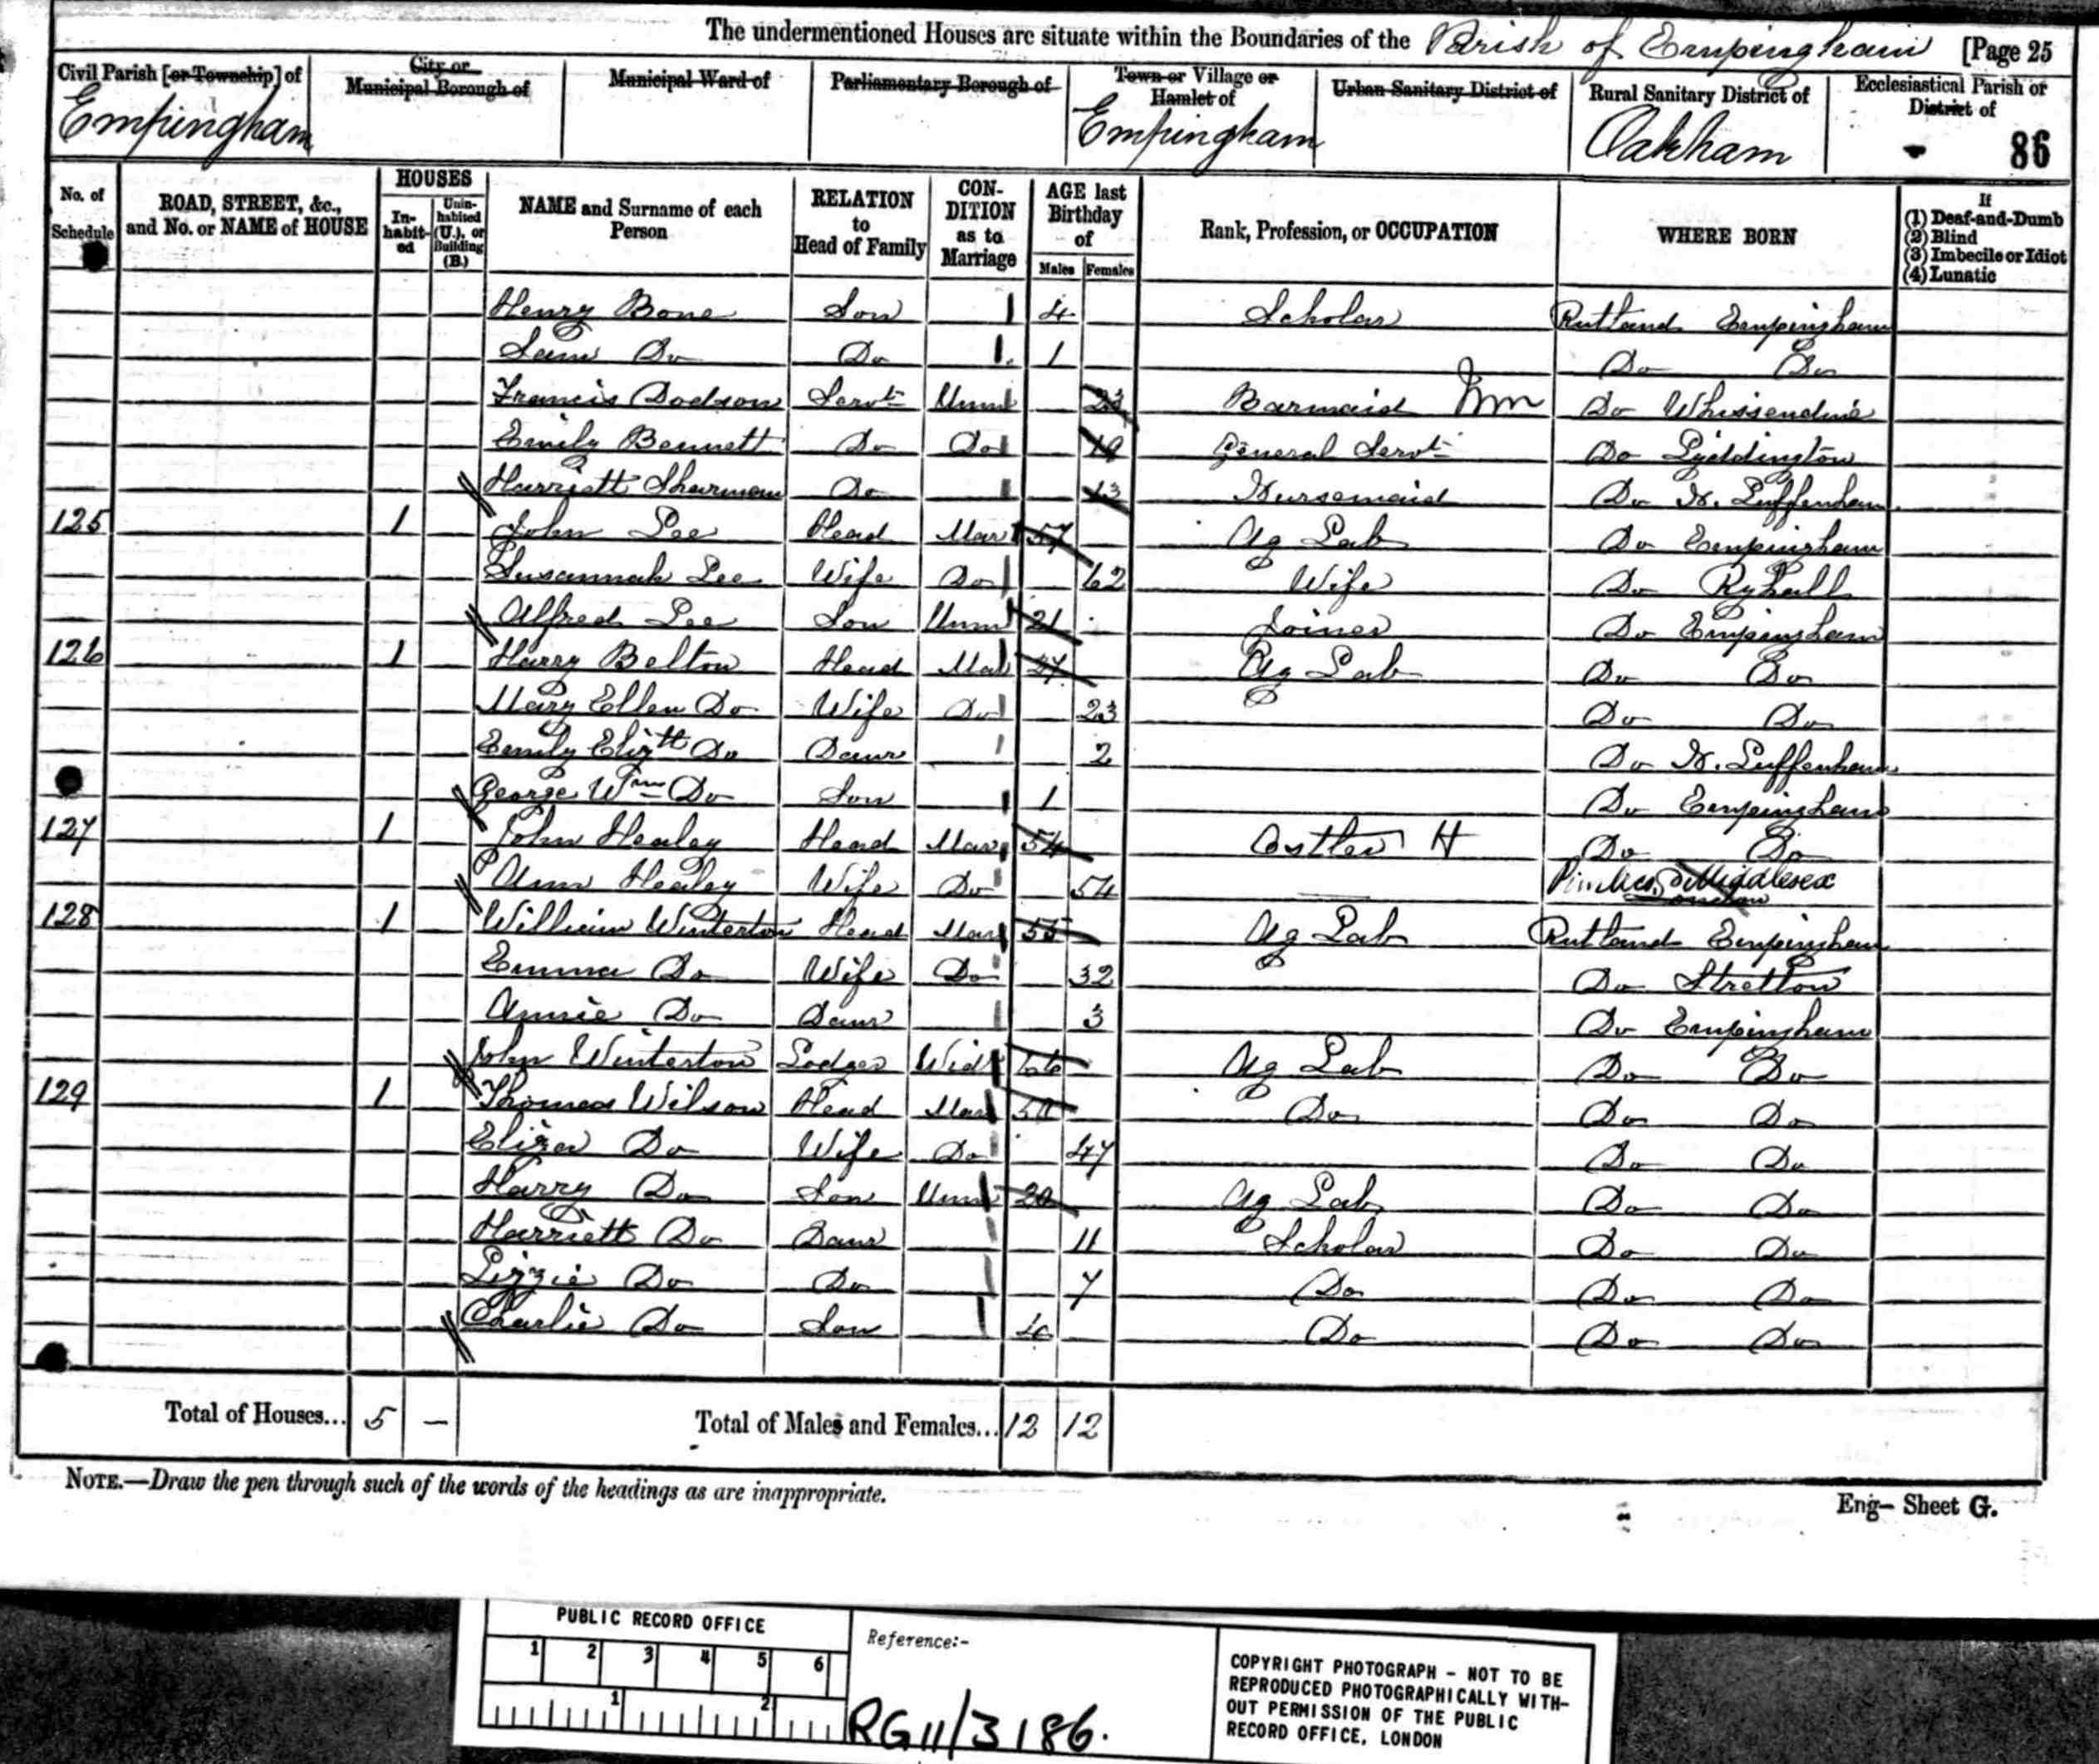 The undermentioned Houses are situate within the Boundaries of the Parish of Empingham [Page 25
Civil Parish [or Township] of Empingham
City or Municipal Borough of
Municipal Ward of
Parliamentary Borough of
Town or Village or Hamlet of Empingham
Urban Sanitary District of
Rural Sanitary District of Oakham
Ecclesiastical Parish or District of -
86
No. of Schedule
ROAD, STREET, &c., and No. or NAME of HOUSE
HOUSES
In-habit-ed
Unin-habited (U.), or Building (B.)
NAME and Surname of each Person
RELATION to Head of Family
CON-DITION as to Marriage
AGE last Birthday of
Males Females
Rank, Profession, or OCCUPATION
WHERE BORN
If
(1) Deaf-and-Dumb
(2) Blind
(3) Imbecile or Idiot
(4) Lunatic
Henry Bone Son 4 Scholar Rutland Empingham
Do Do 1 Do Do
Francis Dodson Servt Unm 23 Barmaid Inn Do Whissendine
Emily Bennett Do Do 19 General Servt Do Lyddington
Harriett Sharman Do 13 Nursemaid Do N. Luffenham
125 1 John Lee Head Mar 57 Ag Lab Do Empingham
Susannah Lee Wife Do 62 Wife Do Ryhall
Alfred Lee Son Unm 21 Joiner Do Empingham
126 1 Harry Belton Head Mar 27 Ag Lab Do Do
Mary Ellen Do Wife Do 23 Do Do
Emily Elizth Do Daur 2 Do N. Luffenham
George Wm Do Son 1 Do Empingham
127 1 John Healey Head Mar 54 Ostler H Do Do
Ann Healey Wife Do 54 Pimlico Middlesex London
128 1 William Winterton Head Mar 55 Ag Lab Rutland Empingham
Emma Do Wife Do 32 Do Stretton
Annie Do Daur 3 Do Empingham
John Winterton Lodger Widr 66 Ag Lab Do Do
129 1 Thomas Wilson Head Mar Do Do Do
Eliza Do Wife Do 47 Do Do
Harry Do Son Unm 20 Ag Lab Do Do
Harriett Do Daur 11 Scholar Do Do
Lizzie Do Do 7 Do Do Do
Charlie Do Son 4 Do Do Do
Total of Houses... 5 — Total of Males and Females... 12 12
NOTE.—Draw the pen through such of the words of the headings as are inappropriate.
Eng— Sheet G.
PUBLIC RECORD OFFICE
1 2 3 4 5 6
1 2
Reference:-
RG11/3186.
COPYRIGHT PHOTOGRAPH - NOT TO BE
REPRODUCED PHOTOGRAPHICALLY WITH-
OUT PERMISSION OF THE PUBLIC
RECORD OFFICE, LONDON